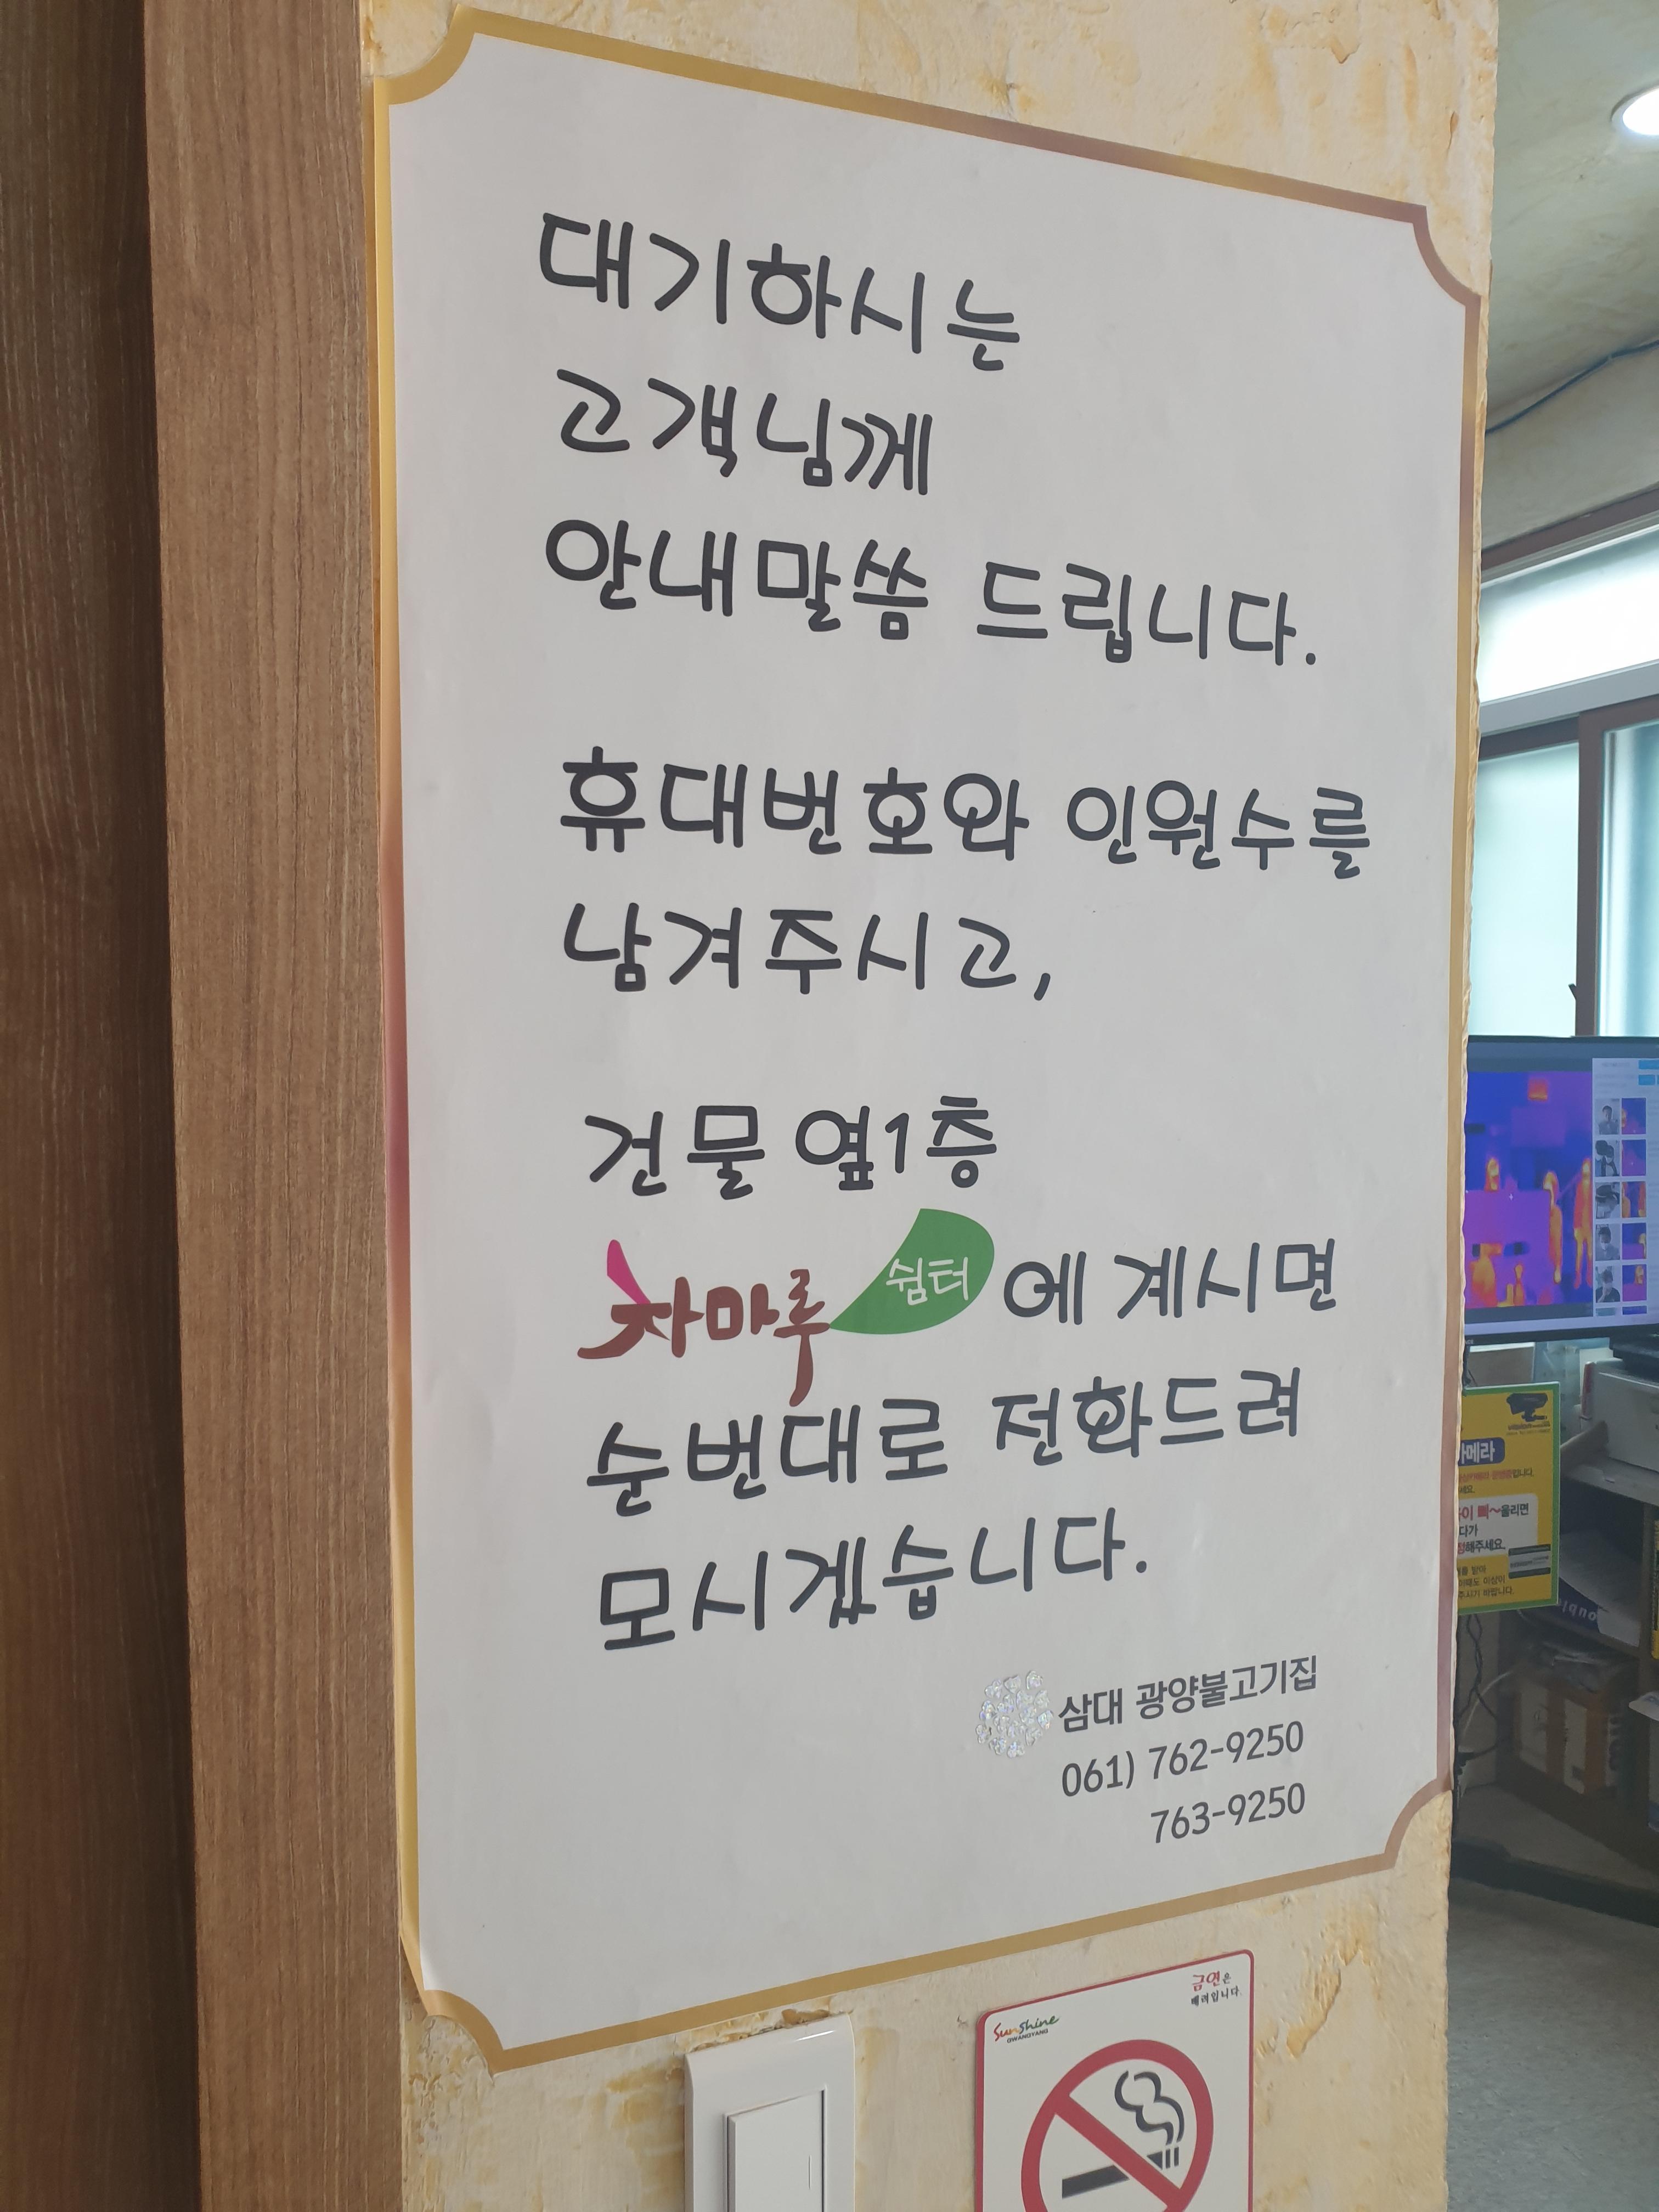 대기하시는
고객님께
안내말씀 드립니다.
휴대번호와 인원수를
남겨주시고,
건물 옆1층
차마루 쉼터에 계시면
순번대로 전화드려
모시겠습니다.
삼대 광양불고기집
061) 762-9250
763-9250
금연은
배려입니다.
Sunshine
GWANGYANG
메라
올리면
다가
해주세요.